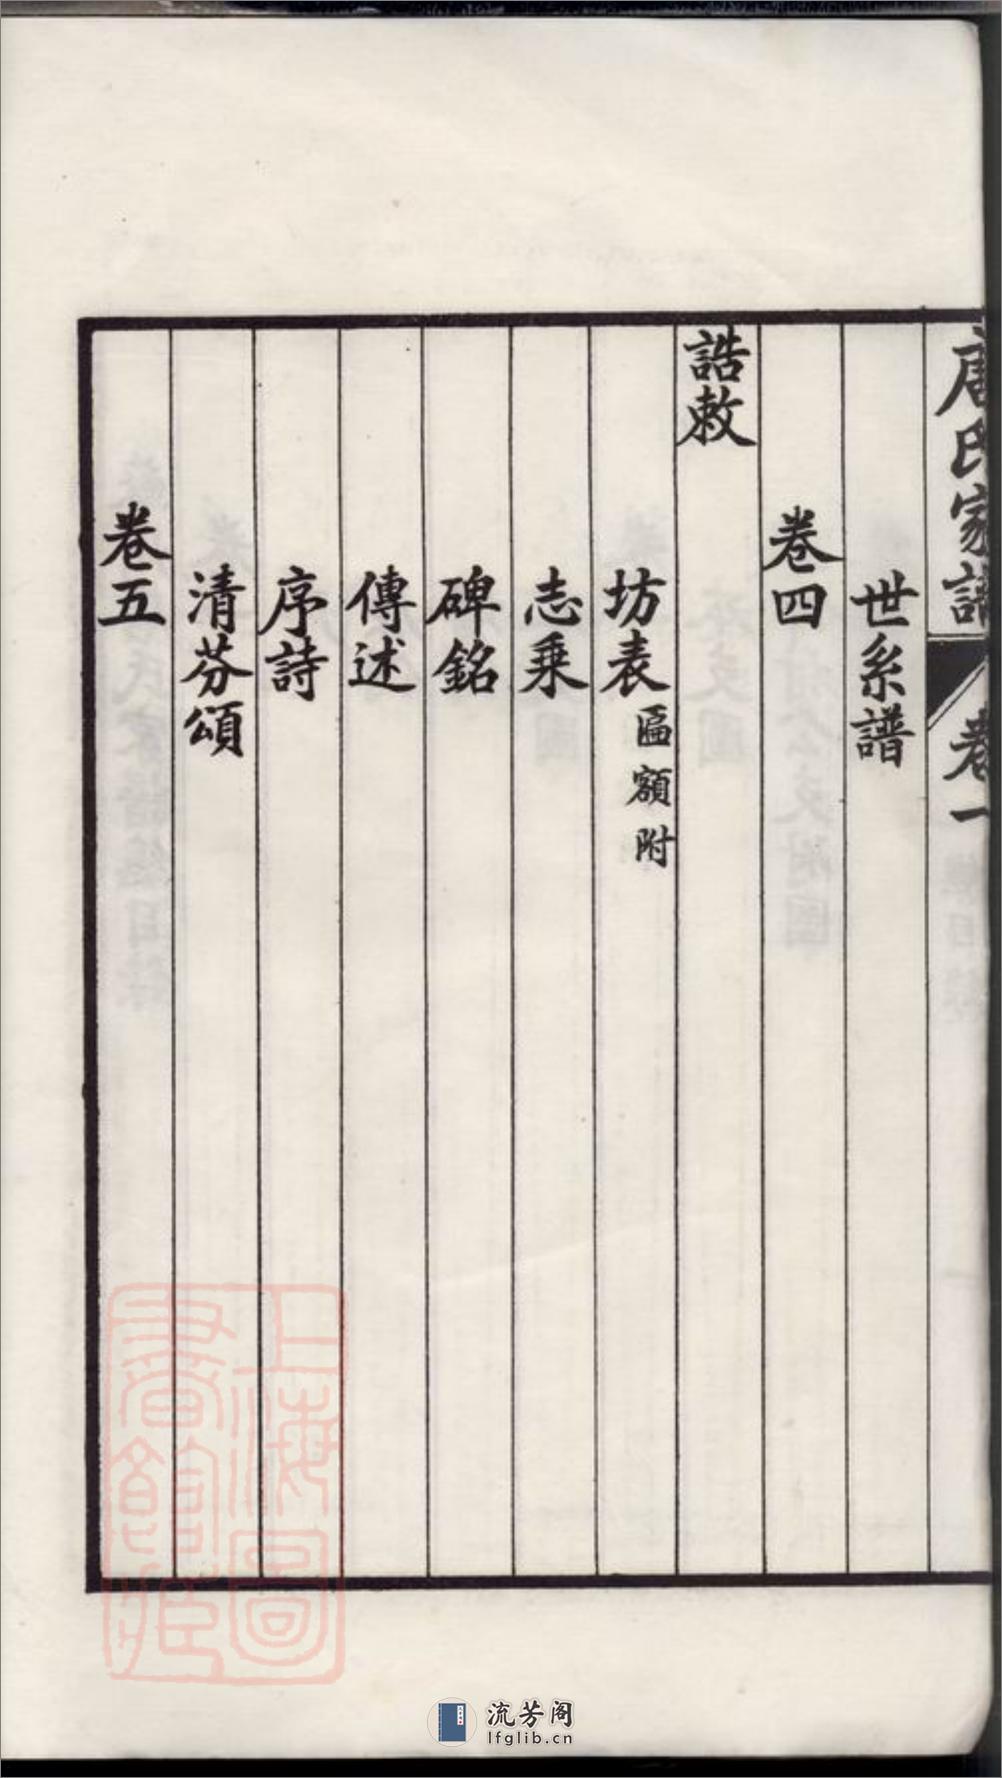 唐氏家譜 卷一 總目錄
世系譜
卷四
誥敕
坊表 匾額附
志乘
碑銘
傳述
序詩
清芬頌
卷五
上海圖書館藏
流芳阁
lfglib.cn